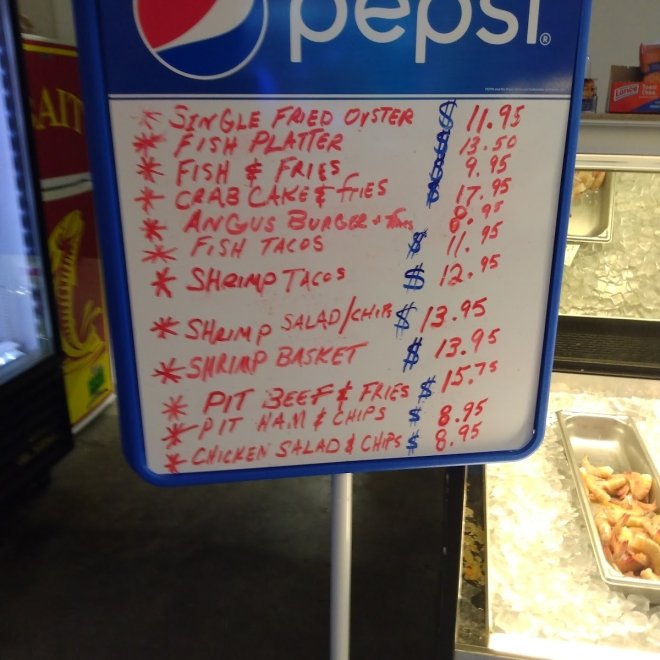 pepsi®
AIT
Lance
* SINGLE FRIED OYSTER $ 11.95
* FISH PLATTER $ 13.50
* FISH & FRIES $ 9.95
* CRAB CAKE & FRIES $ 17.95
* ANGUS BURGER + 8.95
* FISH TACOS $ 11.95
* SHRIMP TACOS $ 12.95
* SHRIMP SALAD/CHIPS $ 13.95
* SHRIMP BASKET $ 13.95
* PIT BEEF & FRIES $ 15.75
* PIT HAM & CHIPS $ 8.95
* CHICKEN SALAD & CHIPS $ 8.95